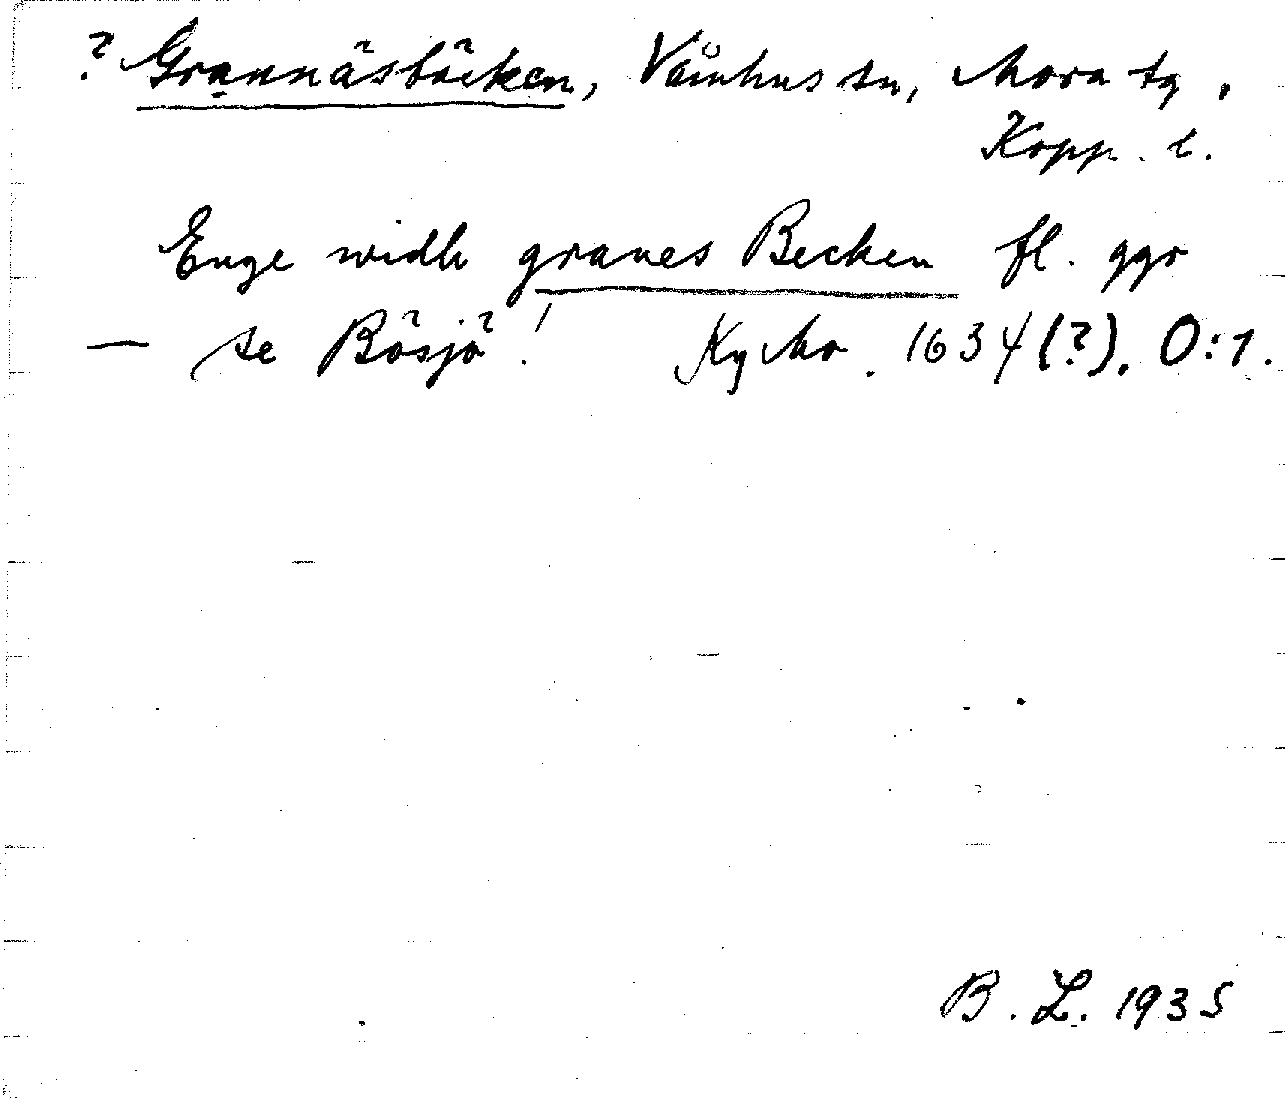 ? Grannäsbäcken, Våmhus sn, Mora tg.
Kopp. l.
Enge widh granes Becken fl. ggr
— se Bösjö! KyMo. 1634(?). O:1.
B. L. 1935